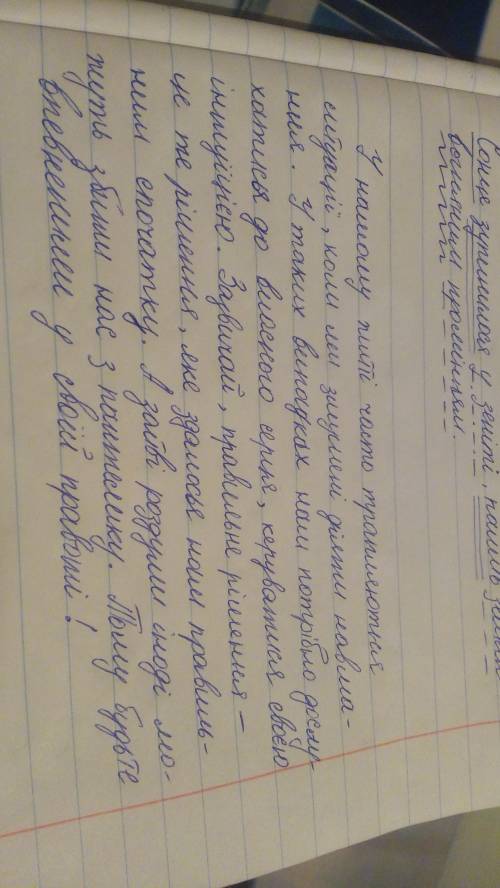 Сонце зупинилося у зеніті,
вогнитним промінням.
У нашому житті часто трапляються
ситуації, коли ми змушені діяти навма-
ння. У таких випадках нам потрібно дослу-
хатись до власного серця, керуватися своєю
інтуіцією. Зазвичай, правильне рішення –
це те рішення, яке здалось нам правиль-
ним спочатку. А зайві роздуми іноді мо-
жуть збити нас з пантелику. Тому будьте
впевненими у своїй правоті!